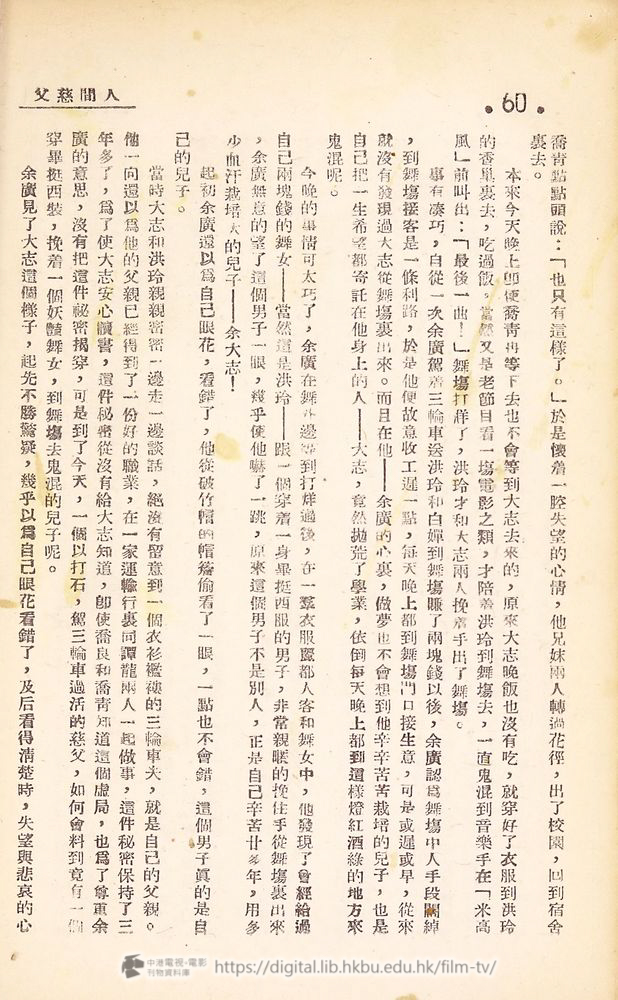 人間慈父
•60•
喬靑點點頭說：「也只有這樣了。」於是懷着一腔失望的心情，他兄妹兩人轉過花徑，出了校園，回到宿舍
裏去。
本來今天晚上卽使喬靑再等下去也不會等到大志去來的，原來大志晚飯也沒有吃，就穿好了衣服到洪玲
的香巢裏去，吃過飯。當然又是老節目看一場電影之類，才陪着洪玲到舞場去，一直鬼混到音樂手在「米高
風」前叫出：「最後一曲！」舞場打烊了，洪玲才和大志兩人挽着手出了舞場。
事有凑巧，自從一次余廣駕着三輪車送洪玲和白嬋到舞場賺了兩塊錢以後，余廣認爲舞場中人手段闊綽
，到舞場接客是一條利路，於是他便故意收工遲一點，每天晚上都到舞場門口接生意，可是或遲或早，從來
就沒有發現過大志從舞場裏出來。而且在他——余廣的心裏，做夢也不會想到他辛辛苦苦栽培的兒子，也是
自己把一生希望都寄託在他身上的人——大志，竟然拋荒了學業，依倒每天晚上都到這樣燈紅酒綠的地方來
鬼混呢。
今晚的事情可太巧了，余廣在舞外邊等到打烊過後，在一羣衣服麗都人客和舞女中，他發現了曾經給過
自己兩塊錢的舞女——當然這是洪玲——跟一個穿着一身畢挺西服的男子，非常親暱的挽住手從舞場裏出來
，余廣無意的望了這個男子一眼，幾乎使他嚇了一跳，原來這個男子不是別人，正是自己辛苦廿多年，用多
少血汗栽培大的兒子——余大志！
起初余廣還以爲自己眼花，看錯了，他從破竹帽的帽簷偷看了一眼，一點也不會錯，這個男子眞的是自
己的兒子。
當時大志和洪玲親親密密一邊走一邊談話，絕沒有留意到一個衣衫襤褸的三輪車夫，就是自己的父親。
他一向還以爲他的父親已經得到了一份好的職業，在一家運輸行裏同譚龍兩人一起做事，這件秘密保持了三
年多了，爲了使大志安心讀書，這件秘密從沒有給大志知道，卽使喬良和喬靑知道這個虛局，也爲了尊重余
廣的意思，沒有把這件秘密揭穿，可是到了今天，一個以打石，駕三輪車過活的慈父，如何會料到竟有一個
穿畢挺西裝，挽着一個妖豔舞女，到舞場去鬼混的兒子呢。
余廣見了大志這個樣子，起先不勝驚疑，幾乎以爲自己眼花看錯了，及后看得清楚時，失望與悲哀的心
中港電視·電影
刊物資料庫
https://digital.lib.hkbu.edu.hk/film-tv/